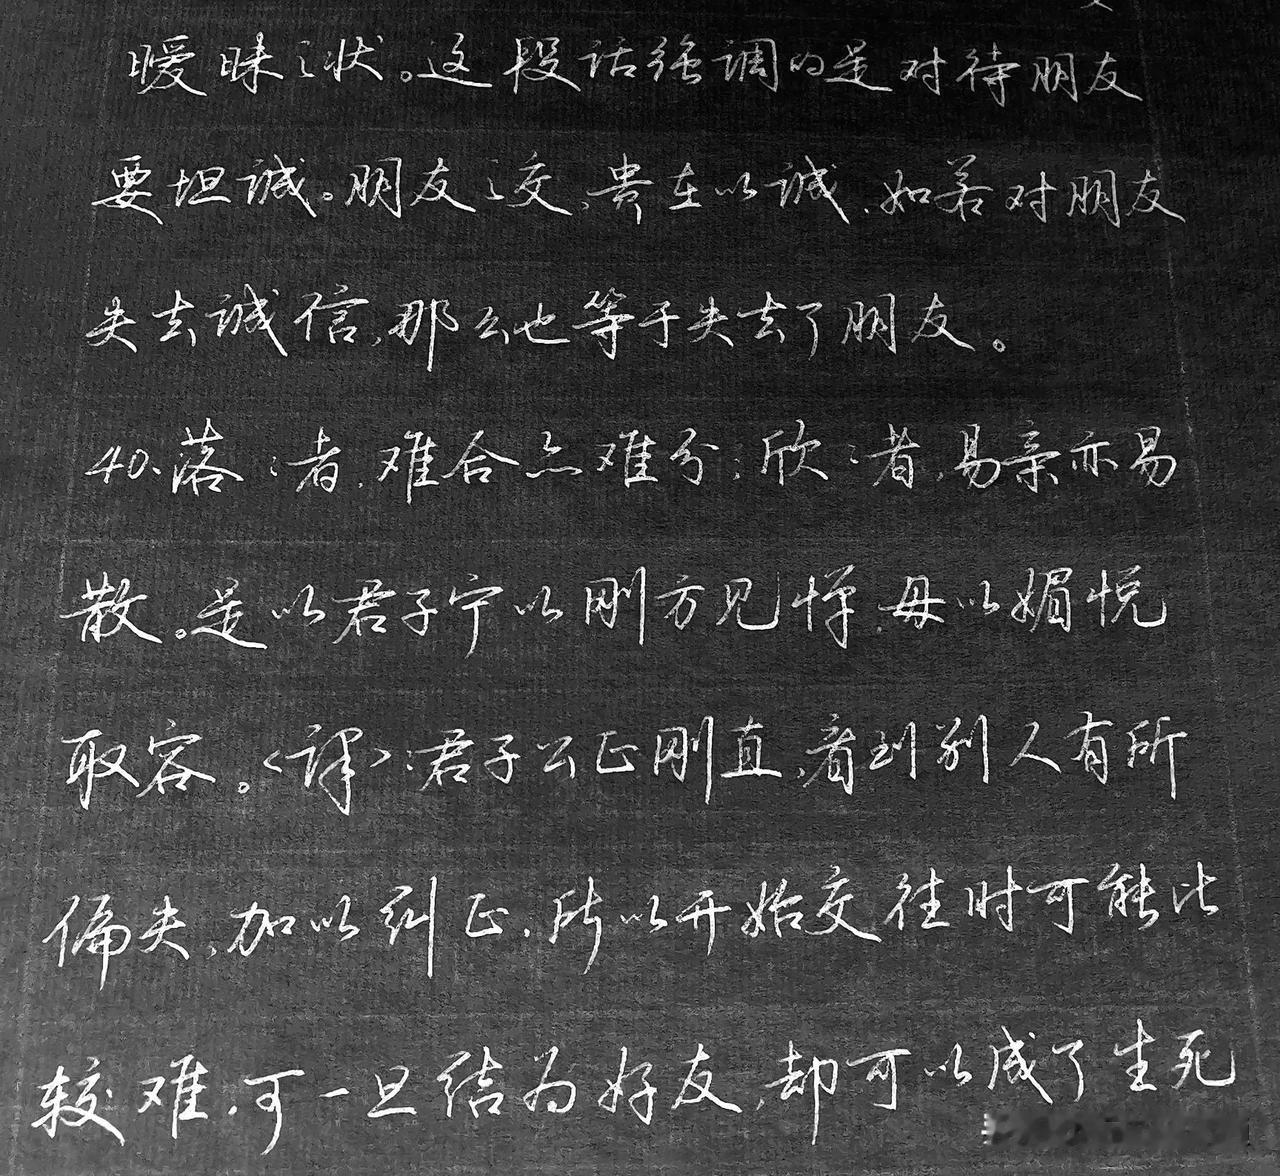 暧昧之状。这段话强调的是对待朋友
要坦诚。朋友之交，贵在以诚，如若对朋友
失去诚信，那么也等于失去了朋友。
40、落落者，难合亦难分；欣欣者，易亲亦易
散。是以君子宁以刚方见惮，毋以媚悦
取容。<译>：君子公正刚直，看到别人有所
偏失，加以纠正，所以开始交往时可能比
较难，可一旦结为好友，却可以成了生死